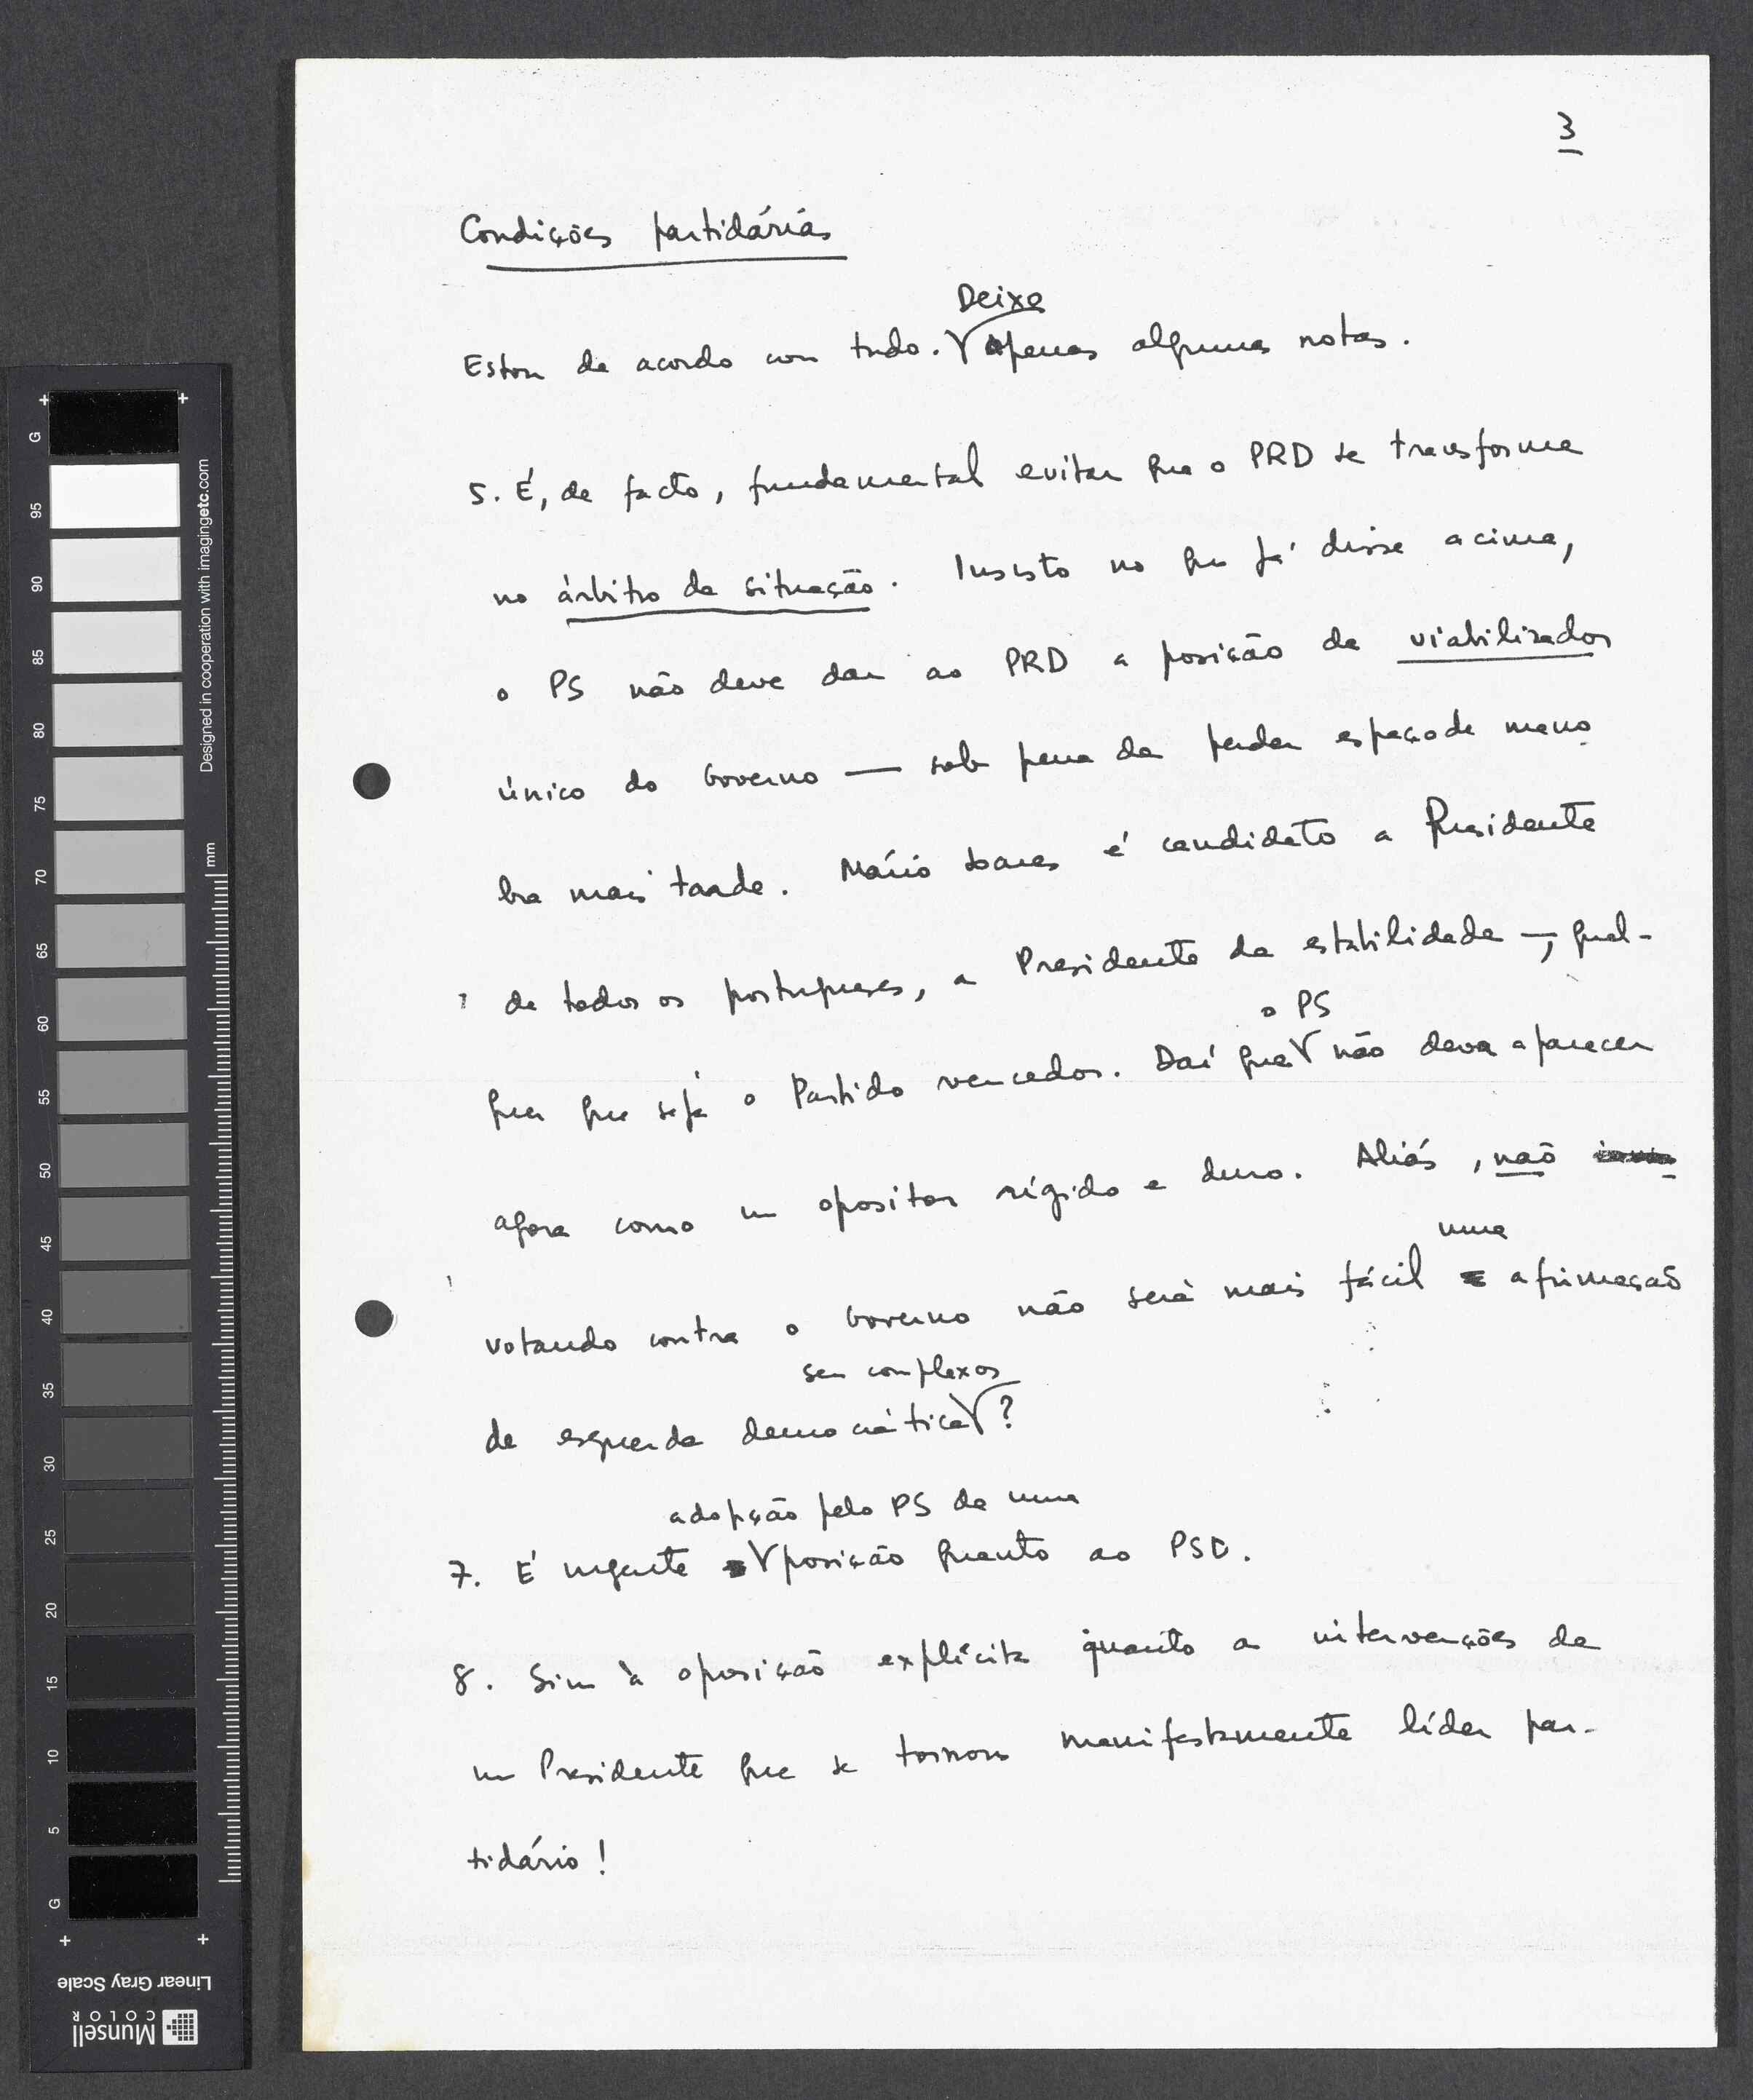 3
Condições partidárias
Deixo
Estou de acordo com tudo. apenas algumas notas.
5. É, de facto, fundamental evitar que o PRD se transforme
no árbitro da situação. Insisto no que já disse acima,
o PS não deve dar ao PRD a posição de viabilizador
único do Governo — sob pena de perder espaço de mano
bra mais tarde. Mário Soares é candidato a Presidente
de todos os portugueses, a Presidente da estabilidade —, qual-
o PS
quer que seja o Partido vencedor. Daí que não deva aparecer
agora como um opositor rígido e duro. Aliás, não
uma
votando contra o Governo não será mais fácil afirmação
sem complexos
de esquerda democrática ?
adopção pelo PS de uma
7. É urgente posição quanto ao PSD.
8. Sim à oposição explícita quanto a intervenções de
um Presidente que se tornou manifestamente líder par-
tidário!
G
95
90
85
80
75
70
65
60
55
50
45
40
35
30
25
20
15
10
5
G
mm
Designed in cooperation with imagingetc.com
Linear Gray Scale
Munsell
COLOR